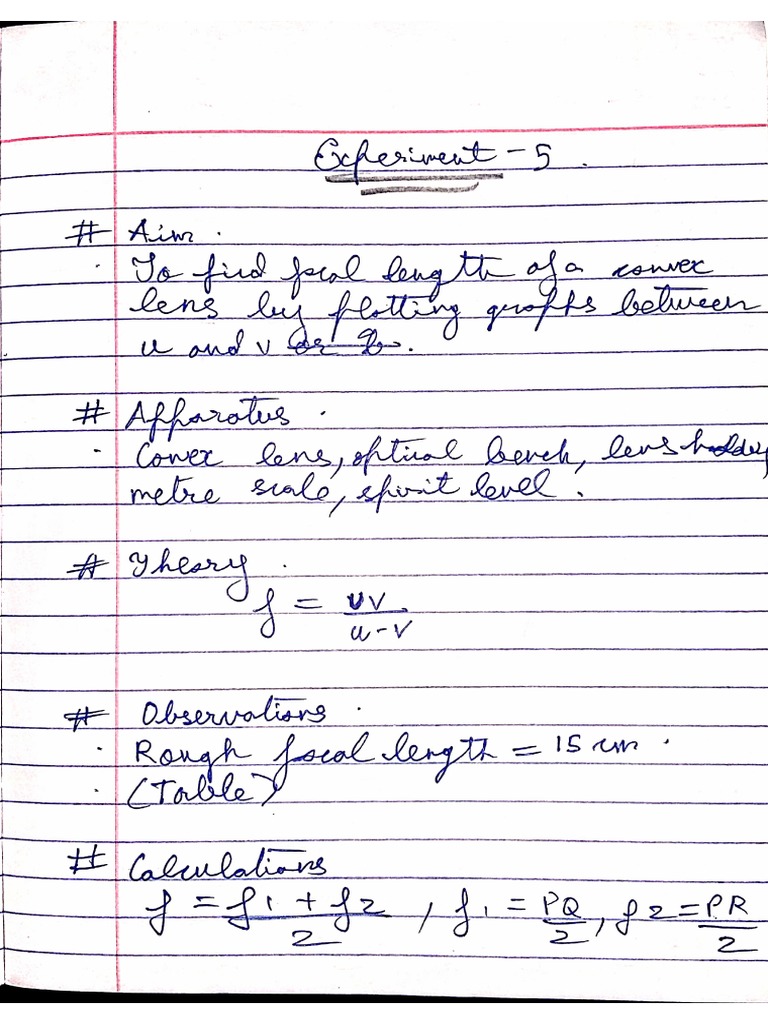 Experiment - 5.
# Aim.
· To find focal length of a convex
lens by plotting graphs between
u and v or
# Apparatus.
- Convex lens, optical bench, lens holder,
metre scale, spirit level.
# Theory.
f = uv / u-v
# Observations.
· Rough focal length = 15 cm.
· (Table)
# Calculations
f = f1 + f2 / 2, f1 = PQ / 2, f2 = PR / 2